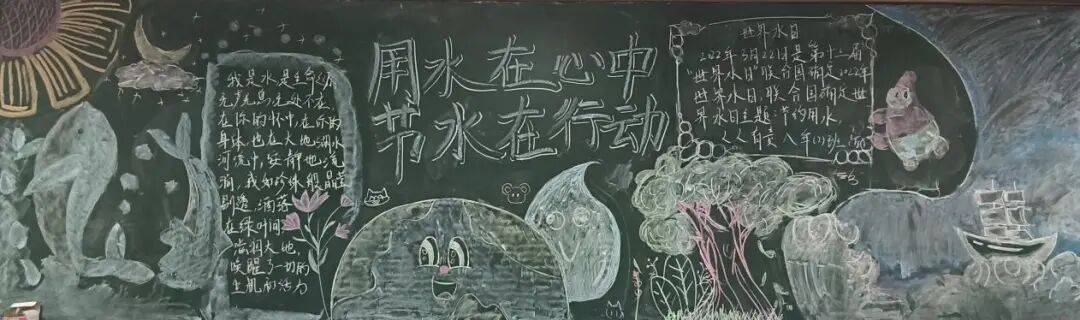 我是水是生命的
在你的怀中,在你的
身体,也在大地湖水
河流中,安静地流
淌,我如珍珠般晶莹
剔透,洒落
在绿叶间
滋润大地,
唤醒了一切的
生机和活力
用水在心中
节水在行动
世界水日
2022年3月22日是第三十届
"世界水日"联合国确定2022年
世界水日,联合国确定世
界水日主题:节约用水
人人自责 八年(2)班